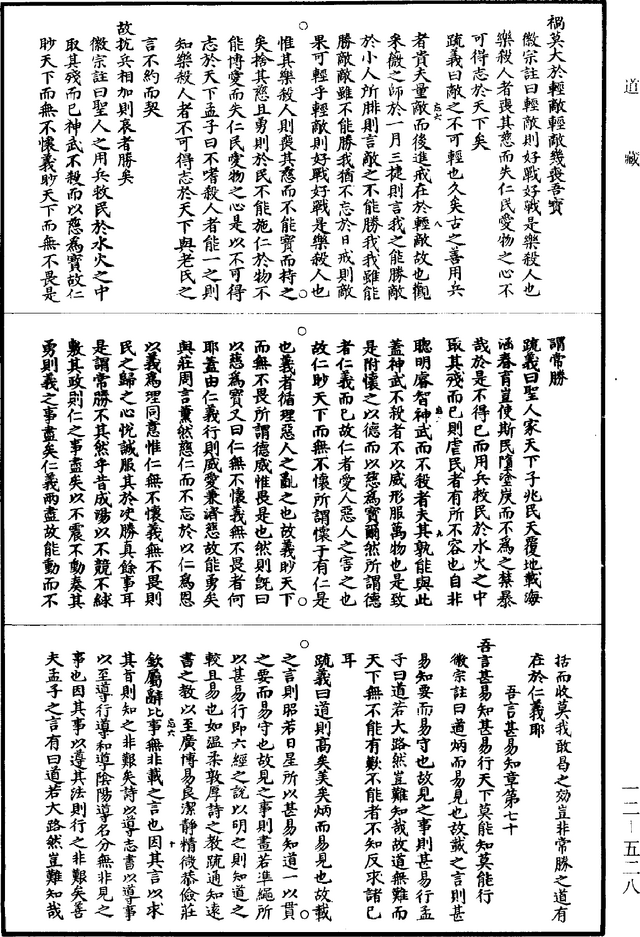 道藏
禍莫大於輕敵輕敵幾喪吾寶
徽宗註曰輕敵則好戰好戰是樂殺人也
樂殺人者喪其慈而失仁民愛物之心不
可得志於天下矣
疏義曰敵之不可輕也久矣古之善用兵
者貴夫量敵而後進戒在於輕敵故也觀
采薇之師於一月三捷則言我之能勝敵
於小人所腓則言敵之不能勝我我雖能
勝敵敵雖不能勝我猶不忘於日戒則敵
果可輕乎輕敵則好戰好戰是樂殺人也
惟其樂殺人則喪其慈而不能寶而持之
矣捨其慈且勇則於民不能施仁於物不
能博愛而失仁民愛物之心是以不可得
志於天下孟子曰不嗜殺人者能一之則
知樂殺人者不可得志於天下與老氏之
言不約而契
故抗兵相加則哀者勝矣
徽宗註曰聖人之用兵救民於水火之中
取其殘而已神武不殺而以慈為寶故仁
眇天下而無不懷義眇天下而無不畏是
謂常勝
疏義曰聖人家天下子兆民天覆地載海
涵春育豈使斯民墮塗炭而不為之禁暴
哉於是不得已而用兵救民於水火之中
取其殘而已則虐民者有所不容也自非
聰明睿智神武而不殺者夫其孰能與此
蓋神武不殺者不以威形服萬物也是致
是附懷之以德而以慈為寶爾然所謂德
者仁義而已故仁者愛人惡人之害之也
故仁眇天下而無不懷所謂懷于有仁是
也義者循理惡人之亂之也故義眇天下
而無不畏所謂德威惟畏是也然則既曰
以慈為寶又曰仁無不懷義無不畏者何
耶蓋由仁義行則威愛兼濟慈故能勇矣
與莊周言薰然慈仁而不忘於以仁為恩
以義為理同意惟仁無不懷義無不畏則
民之歸之心悅誠服其於決勝真餘事耳
是謂常勝不其然乎昔成湯以不競不絿
敷其政則仁之事盡矣以不震不動奏其
勇則義之事盡矣仁義兩盡故能動而不
括而收莫我敢曷之効豈非常勝之道有
在於仁義耶
吾言甚易知章第七十
吾言甚易知甚易行天下莫能知莫能行
徽宗註曰道炳而易見也故載之言則甚
易知要而易守也故見之事則甚易行孟
子曰道若大路然豈難知哉故道無難而
天下無不能有歎不能者不知反求諸己
耳
疏義曰道則高矣美矣炳而易見也故載
之言則昭若日星所以甚易知道一以貫
之要而易守也故見之事則晝若準繩所
以甚易行即六經之說以明之則知道之
較且易也如溫柔敦厚詩之教疏通知遠
書之教以至廣博易良潔靜精微恭儉莊
欽屬辭比事無非載之言也因其言以求
其首則知之非艱矣詩以導志書以導事
以至導行導和導陰陽導名分無非見之
事也因其事以導其法則行之非艱矣善
夫孟子之言有曰道若大路然豈難知哉
一二－五二八